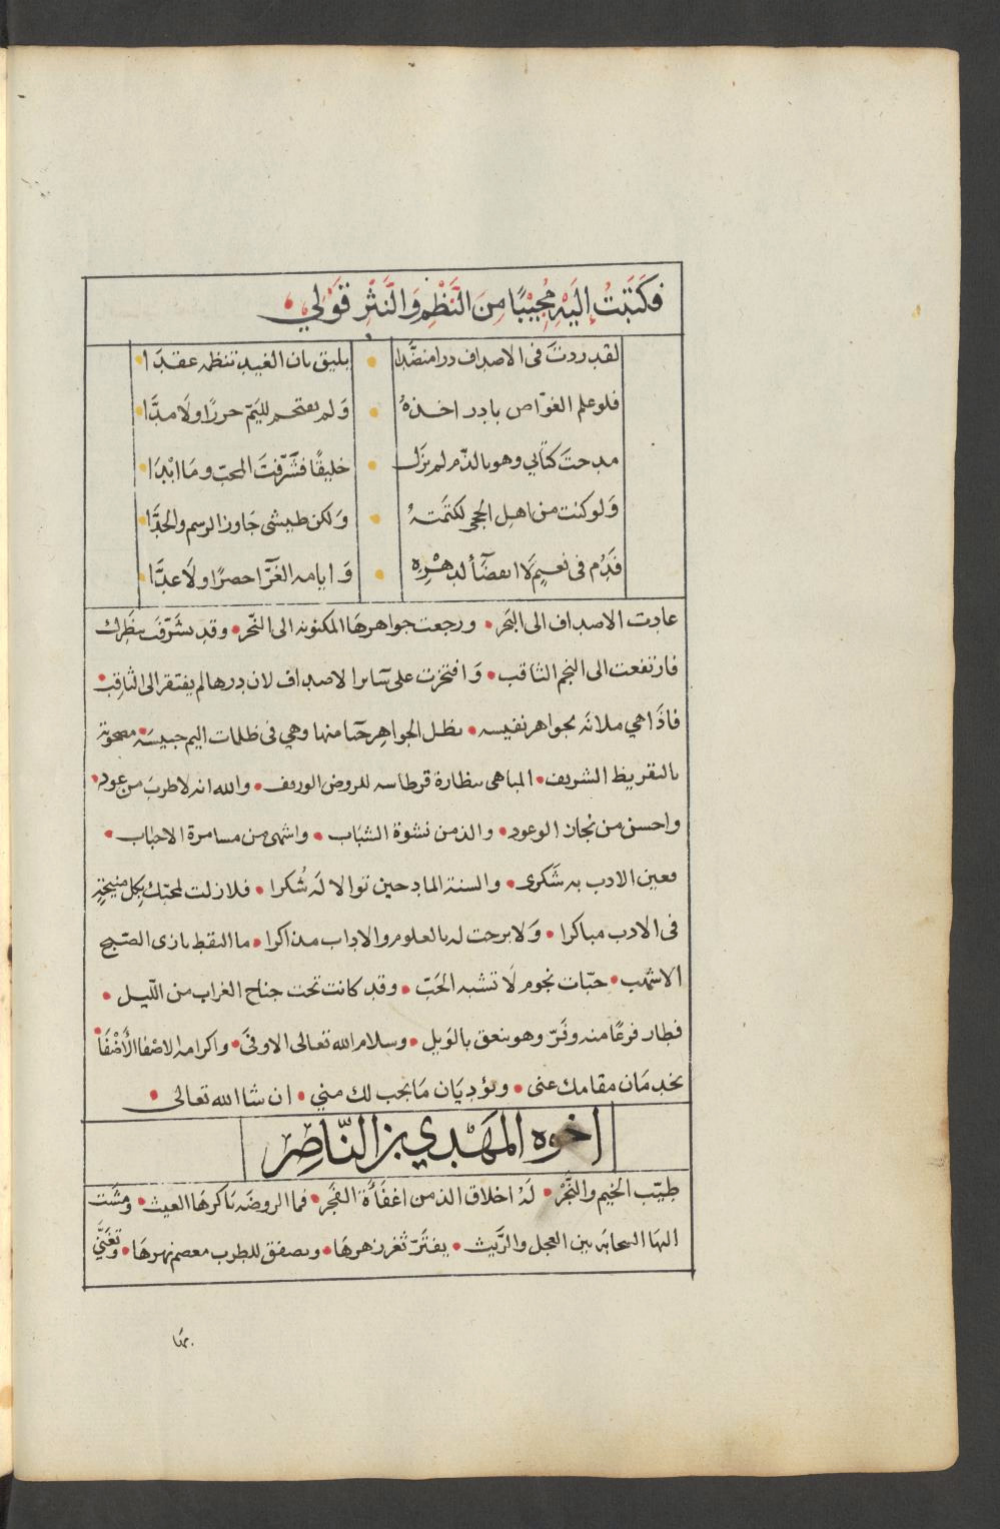 فكَتَبَتُ إِلَيْهِ مُجِيْبًا مِنَ النَّظْمِ وَالنَّثْرِ قَوْلي
لقد رددتَ في الاصداف درا منضَّدا • يليق بان الغيد تنظمه عقدَا
فلو علم الغوّاص بادر اخذهُ • وَلم يقتحم لليَمّ حررًا ولَا مدَّا
مدحتَ كتابي وهو بالذّم لم يزَل • خليقًا فشَرّفتَ المحبّ ومَا ابْدَا
وَلو كنت من اهل الحجى لكتمَتهُ • وَلكن طيشى جَاوز الرسم والحدَّا
فدُم في نعيمٍ لَا انقضَآ لدهْرِه • وَايامه الغَرّآ حصرًا ولَا عدَّا
عادت الاصداف الى البَحر • ورجعت جواهرهَا المكنونه الى النّحر • وقد تشَرّفَت بنظَرك
فارتفعت الى النجم الثاقب • وَافتخرت على سَائر الاصداف لان درها لم يفتقر الى الثاقِب •
فاذَا هي ملانَه بجواهر نفيسه • تظل الجواهِر حَيا منها وهي في ظلمات اليم حبيسَه •
بالتقريظ الشريف • المباهى بنظارة قرطاسه للروض الوريف • والله انه لاطربَ من عود •
واحسن من نجاز الوعود • والذ من نشوة الشبَاب • واشهى من مسامرة الاحبَاب •
فعين الادب به شَكرى • والسنة المادحين توالا لَه شُكرا • فلا زلت لمحبّك بكل منيحَةٍ
فى الادب مباكرا • وَلا برحت له بالعلوم والاداب مذاكرا • ما التقط بازى الصّبح
الاشهب • حبّات نجوم لَا تشبه الحَبّ • وقد كانت تحت جناح الغراب من اللّيل •
فطار فرعًا منه وفَرّ وهو ينعق بالوَيل • وسلام الله تعالى الاوفَى • واكرامه الاصْفا الأَضْفَا •
يخدمَان مقامك عنى • ويؤديَان مَا يجب لك مني • ان شا الله تعالى •
اخوه المَهْدي بن النّاصِر
طيّب الخيم والنَّجْر • لَهُ اخلاق الذ من اغفَاءَة الفَجر • فما الروضَه بَاكرهَا الغيث • ومشَت
اليهَا السحابَه بين العجل والرَّيث • يفتَرّ ثغر زهرهَا • ويصفق للطرب معصم نهرهَا • وتغَنَّي